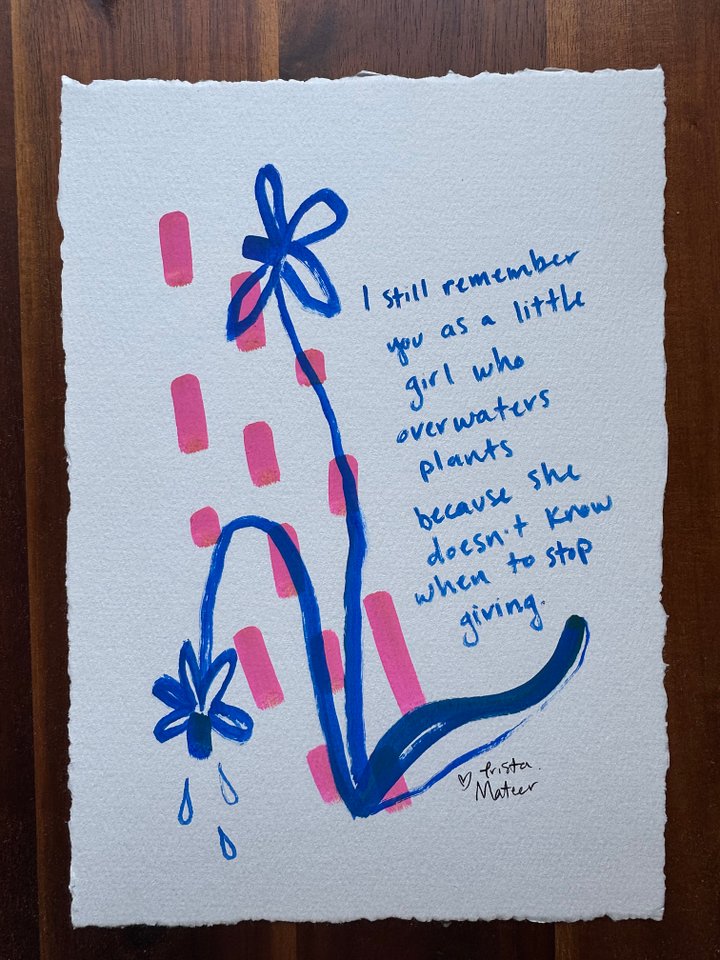 I still remember
you as a little
girl who
overwaters
plants
because she
doesn't know
when to stop
giving.
♡ trista
Mateer